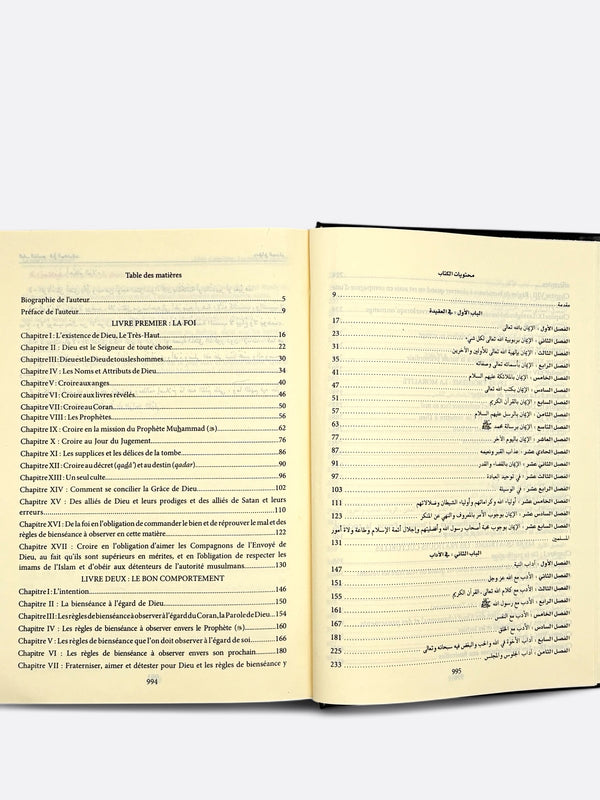 Table des matières
Biographie de l'auteur....5
Préface de l'auteur....9
LIVRE PREMIER : LA FOI
Chapitre I : L'existence de Dieu, Le Très-Haut....16
Chapitre II : Dieu est le Seigneur de toute chose....22
Chapitre III : Dieu est le Dieu de tous les hommes....30
Chapitre IV : Les Noms et Attributs de Dieu....34
Chapitre V : Croire aux anges....40
Chapitre VI : Croire aux livres révélés....46
Chapitre VII : Croire au Coran....50
Chapitre VIII : Les Prophètes....56
Chapitre IX : Croire en la mission du Prophète Muḥammad (ﷺ)....62
Chapitre X : Croire au Jour du Jugement....76
Chapitre XI : Les supplices et les délices de la tombe....86
Chapitre XII : Croire au décret (qaḍâ') et au destin (qadar)....90
Chapitre XIII : Un seul culte....96
Chapitre XIV : Comment se concilier la Grâce de Dieu....102
Chapitre XV : Des alliés de Dieu et leurs prodiges et des alliés de Satan et leurs
erreurs....110
Chapitre XVI : De la foi en l'obligation de commander le bien et de réprouver le mal et des
règles de bienséance à observer en cette matière....122
Chapitre XVII : Croire en l'obligation d'aimer les Compagnons de l'Envoyé de
Dieu, au fait qu'ils sont supérieurs en mérites, et en l'obligation de respecter les
imams de l'Islam et d'obéir aux détenteurs de l'autorité musulmans....130
LIVRE DEUX : LE BON COMPORTEMENT
Chapitre I : L'intention....146
Chapitre II : La bienséance à l'égard de Dieu....150
Chapitre III : Les règles de bienséance à observer à l'égard du Coran, la Parole de Dieu....154
Chapitre IV : Les règles de bienséance à observer envers le Prophète (ﷺ)....160
Chapitre V : Les règles de bienséance que l'on doit observer à l'égard de soi....166
Chapitre VI : Les règles de bienséance à observer envers son prochain....180
Chapitre VII : Fraterniser, aimer et détester pour Dieu et les règles de bienséance y
994
محتويات الكتاب
مقدمة....9
الباب الأول : في العقيدة
الفصل الأول : الإيمان بالله تعالى....17
الفصل الثاني : الإيمان بربوبية الله تعالى لكل شيء....23
الفصل الثالث : الإيمان بإلهية الله تعالى للأولين والآخرين....31
الفصل الرابع : الإيمان بأسمائه تعالى وصفاته....35
الفصل الخامس : الإيمان بالملائكة عليهم السلام....41
الفصل السادس : الإيمان بكتب الله تعالى....47
الفصل السابع : الإيمان بالقرآن الكريم....51
الفصل الثامن : الإيمان بالرسل عليهم السلام....57
الفصل التاسع : الإيمان برسالة محمد ﷺ....63
الفصل العاشر : الإيمان باليوم الآخر....77
الفصل الحادي عشر : عذاب القبر ونعيمه....87
الفصل الثاني عشر : الإيمان بالقضاء والقدر....91
الفصل الثالث عشر : في توحيد العبادة....97
الفصل الرابع عشر : في الوسيلة....103
الفصل الخامس عشر : أولياء الله وكراماتهم وأولياء الشيطان وضلالاتهم....111
الفصل السادس عشر : الإيمان بوجوب الأمر بالمعروف والنهي عن المنكر....123
الفصل السابع عشر : الإيمان بوجوب محبة أصحاب رسول الله وأفضليتهم وإجلال أئمة الإسلام وطاعة ولاة أمور
المسلمين....131
الباب الثاني : في الآداب
الفصل الأول : آداب النية....147
الفصل الثاني : الأدب مع الله عز وجل....151
الفصل الثالث : الأدب مع كلام الله تعالى ـ القرآن الكريم....155
الفصل الرابع : الأدب مع رسول الله ﷺ....161
الفصل الخامس : الأدب مع النفس....167
الفصل السادس : الأدب مع الخلق....181
الفصل السابع : آداب الأخوة في الله والحب والبغض فيه سبحانه وتعالى....225
الفصل الثامن : آداب الجلوس والمجلس....233
995